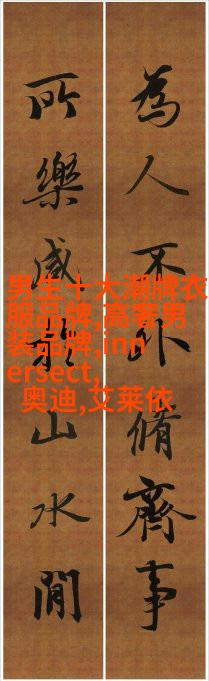 為人不外脩齊事
所樂咸山水間
男生十大潮牌衣
服品牌,高奢男
装品牌,inn
ersect,
奥迪,艾莱依